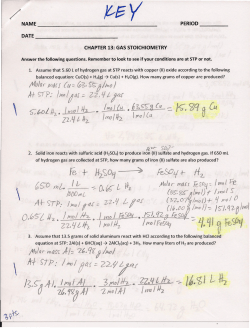 KEY
NAME PERIOD
DATE
CHAPTER 13: GAS STOICHIOMETRY
Answer the following questions. Remember to look to see if your conditions are at STP or not.
1. Assume that 5.60 L of hydrogen gas at STP reacts with copper (II) oxide according to the following
balanced equation: CuO(s) + H₂(g) → Cu(s) + H₂O(g). How many grams of copper are produced?
Molar mass Cu = 63.55 g/mol
At STP: 1 mol gas = 22.4 L gas
5.60 L H₂ · 1 mol H₂ / 22.4 L H₂ · 1 mol Cu / 1 mol H₂ · 63.55 g Cu / 1 mol Cu = 15.89 g Cu
2. Solid iron reacts with sulfuric acid (H₂SO₄) to produce iron (II) sulfate and hydrogen gas. If 650 mL
of hydrogen gas are collected at STP, how many grams of iron (II) sulfate are also produced?
Fe + H₂SO₄ → FeSO₄ + H₂
650 mL · 1 L / 1000 mL = 0.65 L H₂
Molar mass FeSO₄:
At STP: 1 mol gas = 22.4 L gas
= 151.92 g/mol
0.65 L H₂ · 1 mol H₂ / 22.4 L H₂ · 1 mol FeSO₄ / 1 mol H₂ · 151.92 g FeSO₄ / 1 mol FeSO₄ = 4.41 g FeSO₄
3. Assume that 13.5 g of solid aluminum react with HCl according to the following balanced
equation at STP: 2Al(s) + 6HCl(aq) → 2AlCl₃(aq) + 3H₂. How many liters of H₂ are formed?
Molar mass Al = 26.98 g/mol
At STP: 1 mol gas = 22.4 L gas
13.5 g Al · 1 mol Al / 26.98 g Al · 3 mol H₂ / 2 mol Al · 22.4 L H₂ / 1 mol H₂ = 16.81 L H₂
3 pts